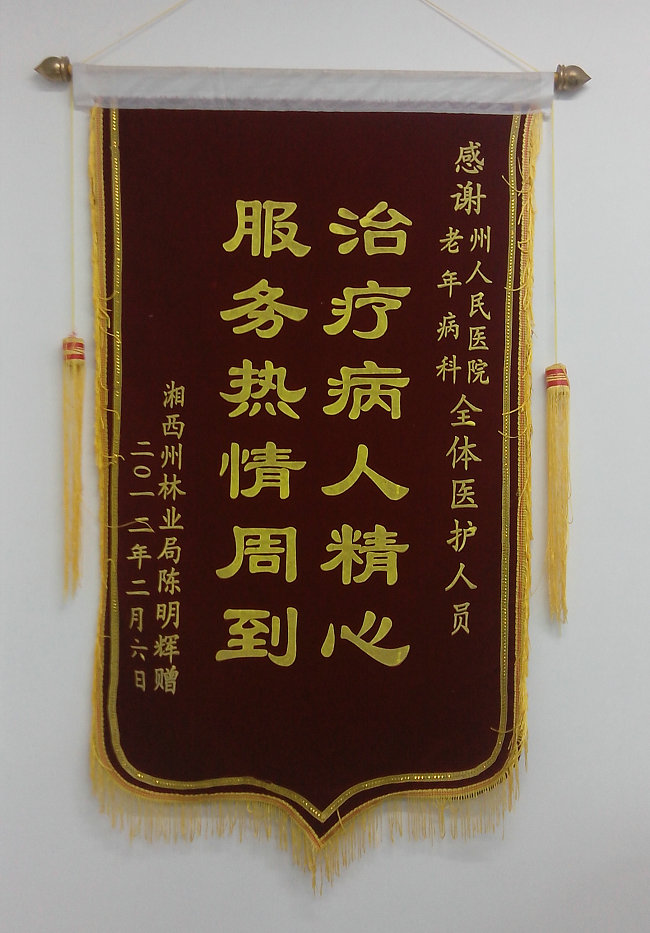 感谢州人民医院老年病科全体医护人员
治疗病人精心
服务热情周到
湘西州林业局陈明辉赠
二〇一二年二月六日